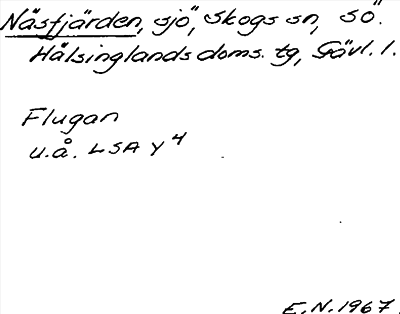 Näsfjärden, sjö, Skogs sn, sö.
Hälsinglands doms. tg, Gävl. l.
Flugan
u.å. LSA Y 4
E.N. 1967.